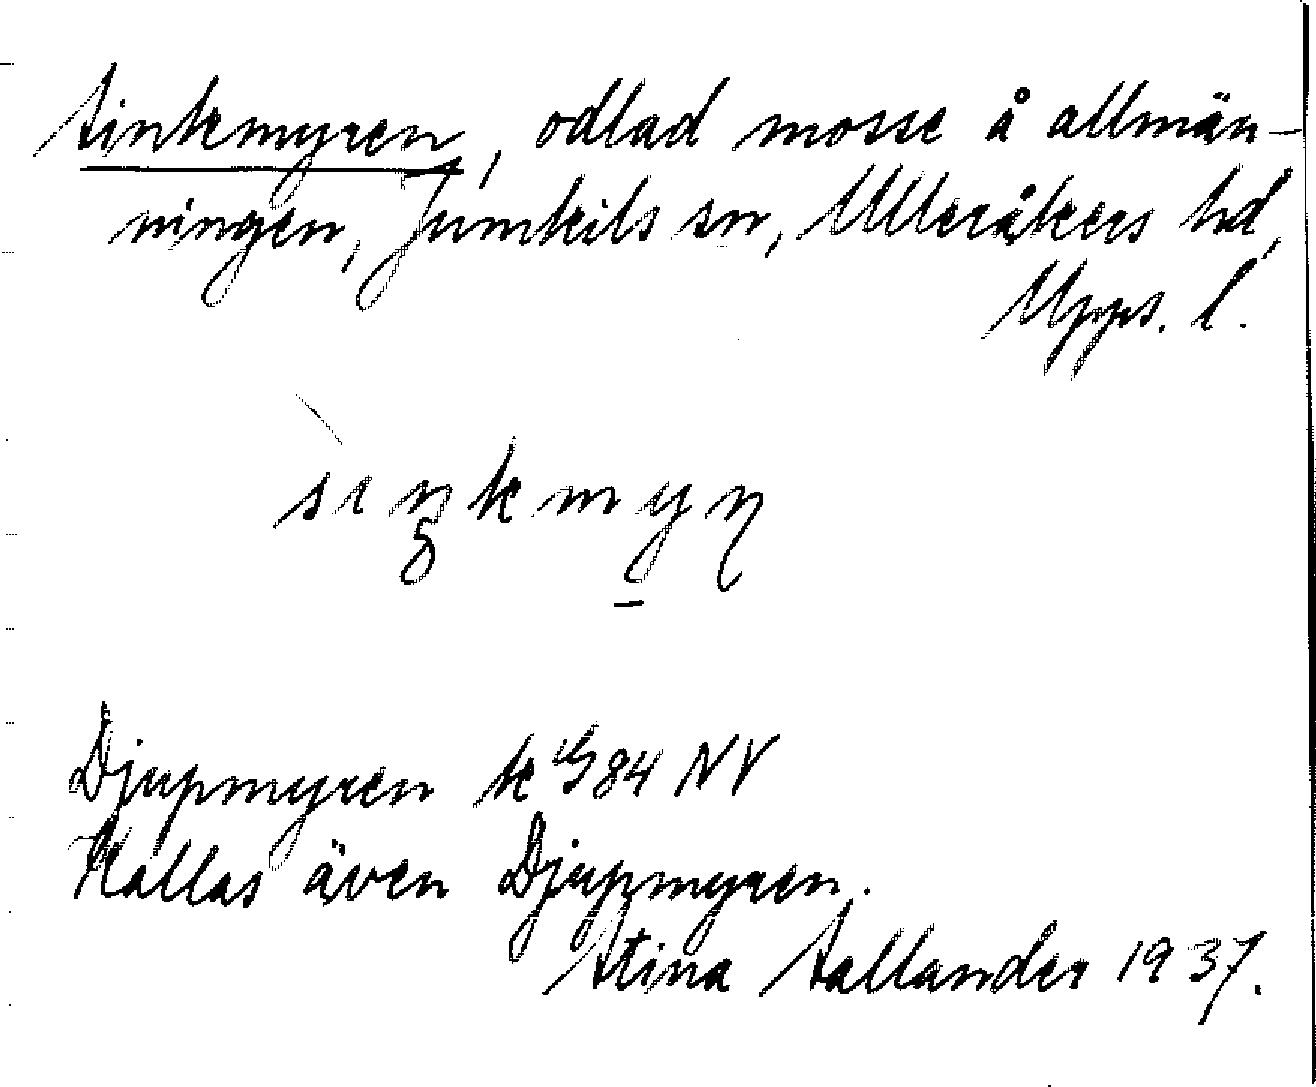 Sinkmyren, odlad mosse å allmän-
ningen, Jumkils sn, Ulleråkers hd,
Upps. l.
Djupmyren k 84 NV
Kallas även Djupmyren.
Stina Sallander 1937.